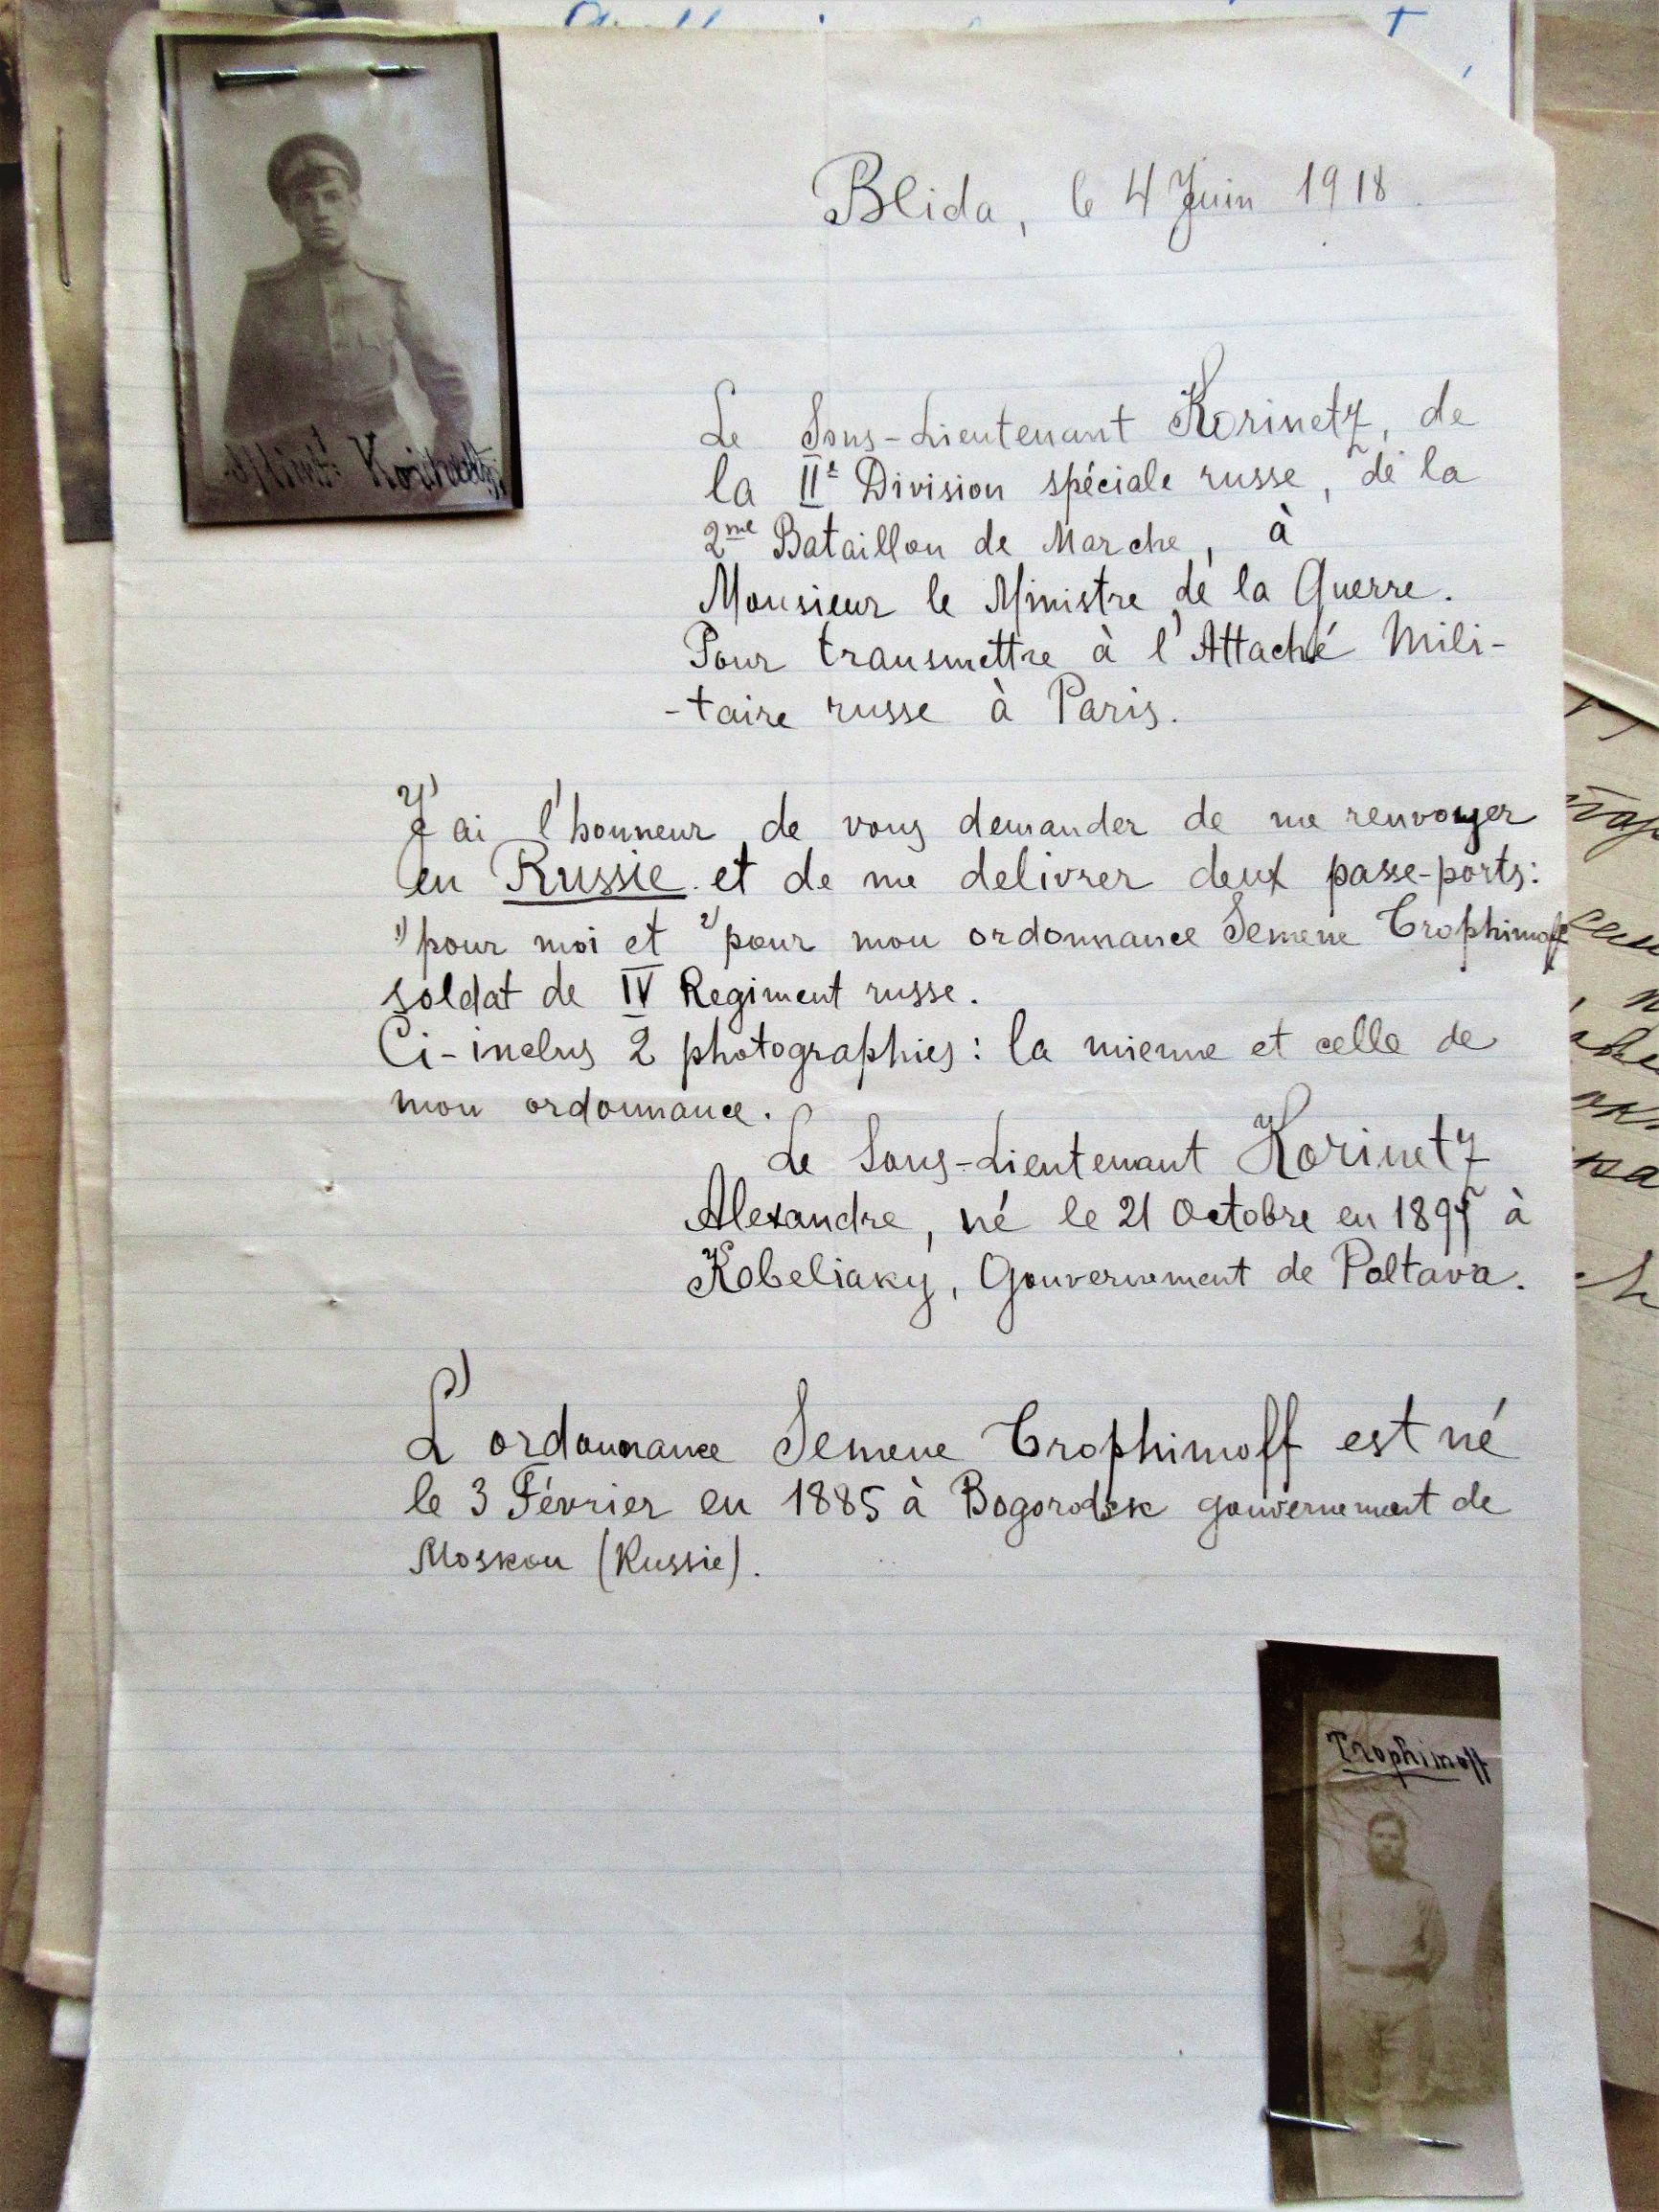 Blida, le 4 Juin 1918.
Le Sous-Lieutenant Korinetz, de
la IIe Division spéciale russe, de la
2me Bataillon de Marche, à
Monsieur le Ministre de la Guerre.
Pour transmettre à l'Attaché Mili-
-taire russe à Paris.
J'ai l'honneur de vous demander de me renvoyer
en Russie et de me delivrer deux passe-ports:
1) pour moi et 2) pour mon ordonnance Semene Trophimoff
soldat de IV Regiment russe.
Ci-inclus 2 photographies: la mienne et celle de
mon ordonnance.
Le Sous-Lieutenant Korinetz
Alexandre, né le 21 Octobre en 1897 à
Kobeliaky, Gouvernement de Poltava.
L'ordonnance Semene Trophimoff est né
le 3 Février en 1885 à Bogorodsk gouvernement de
Moskou (Russie).
Trophimoff